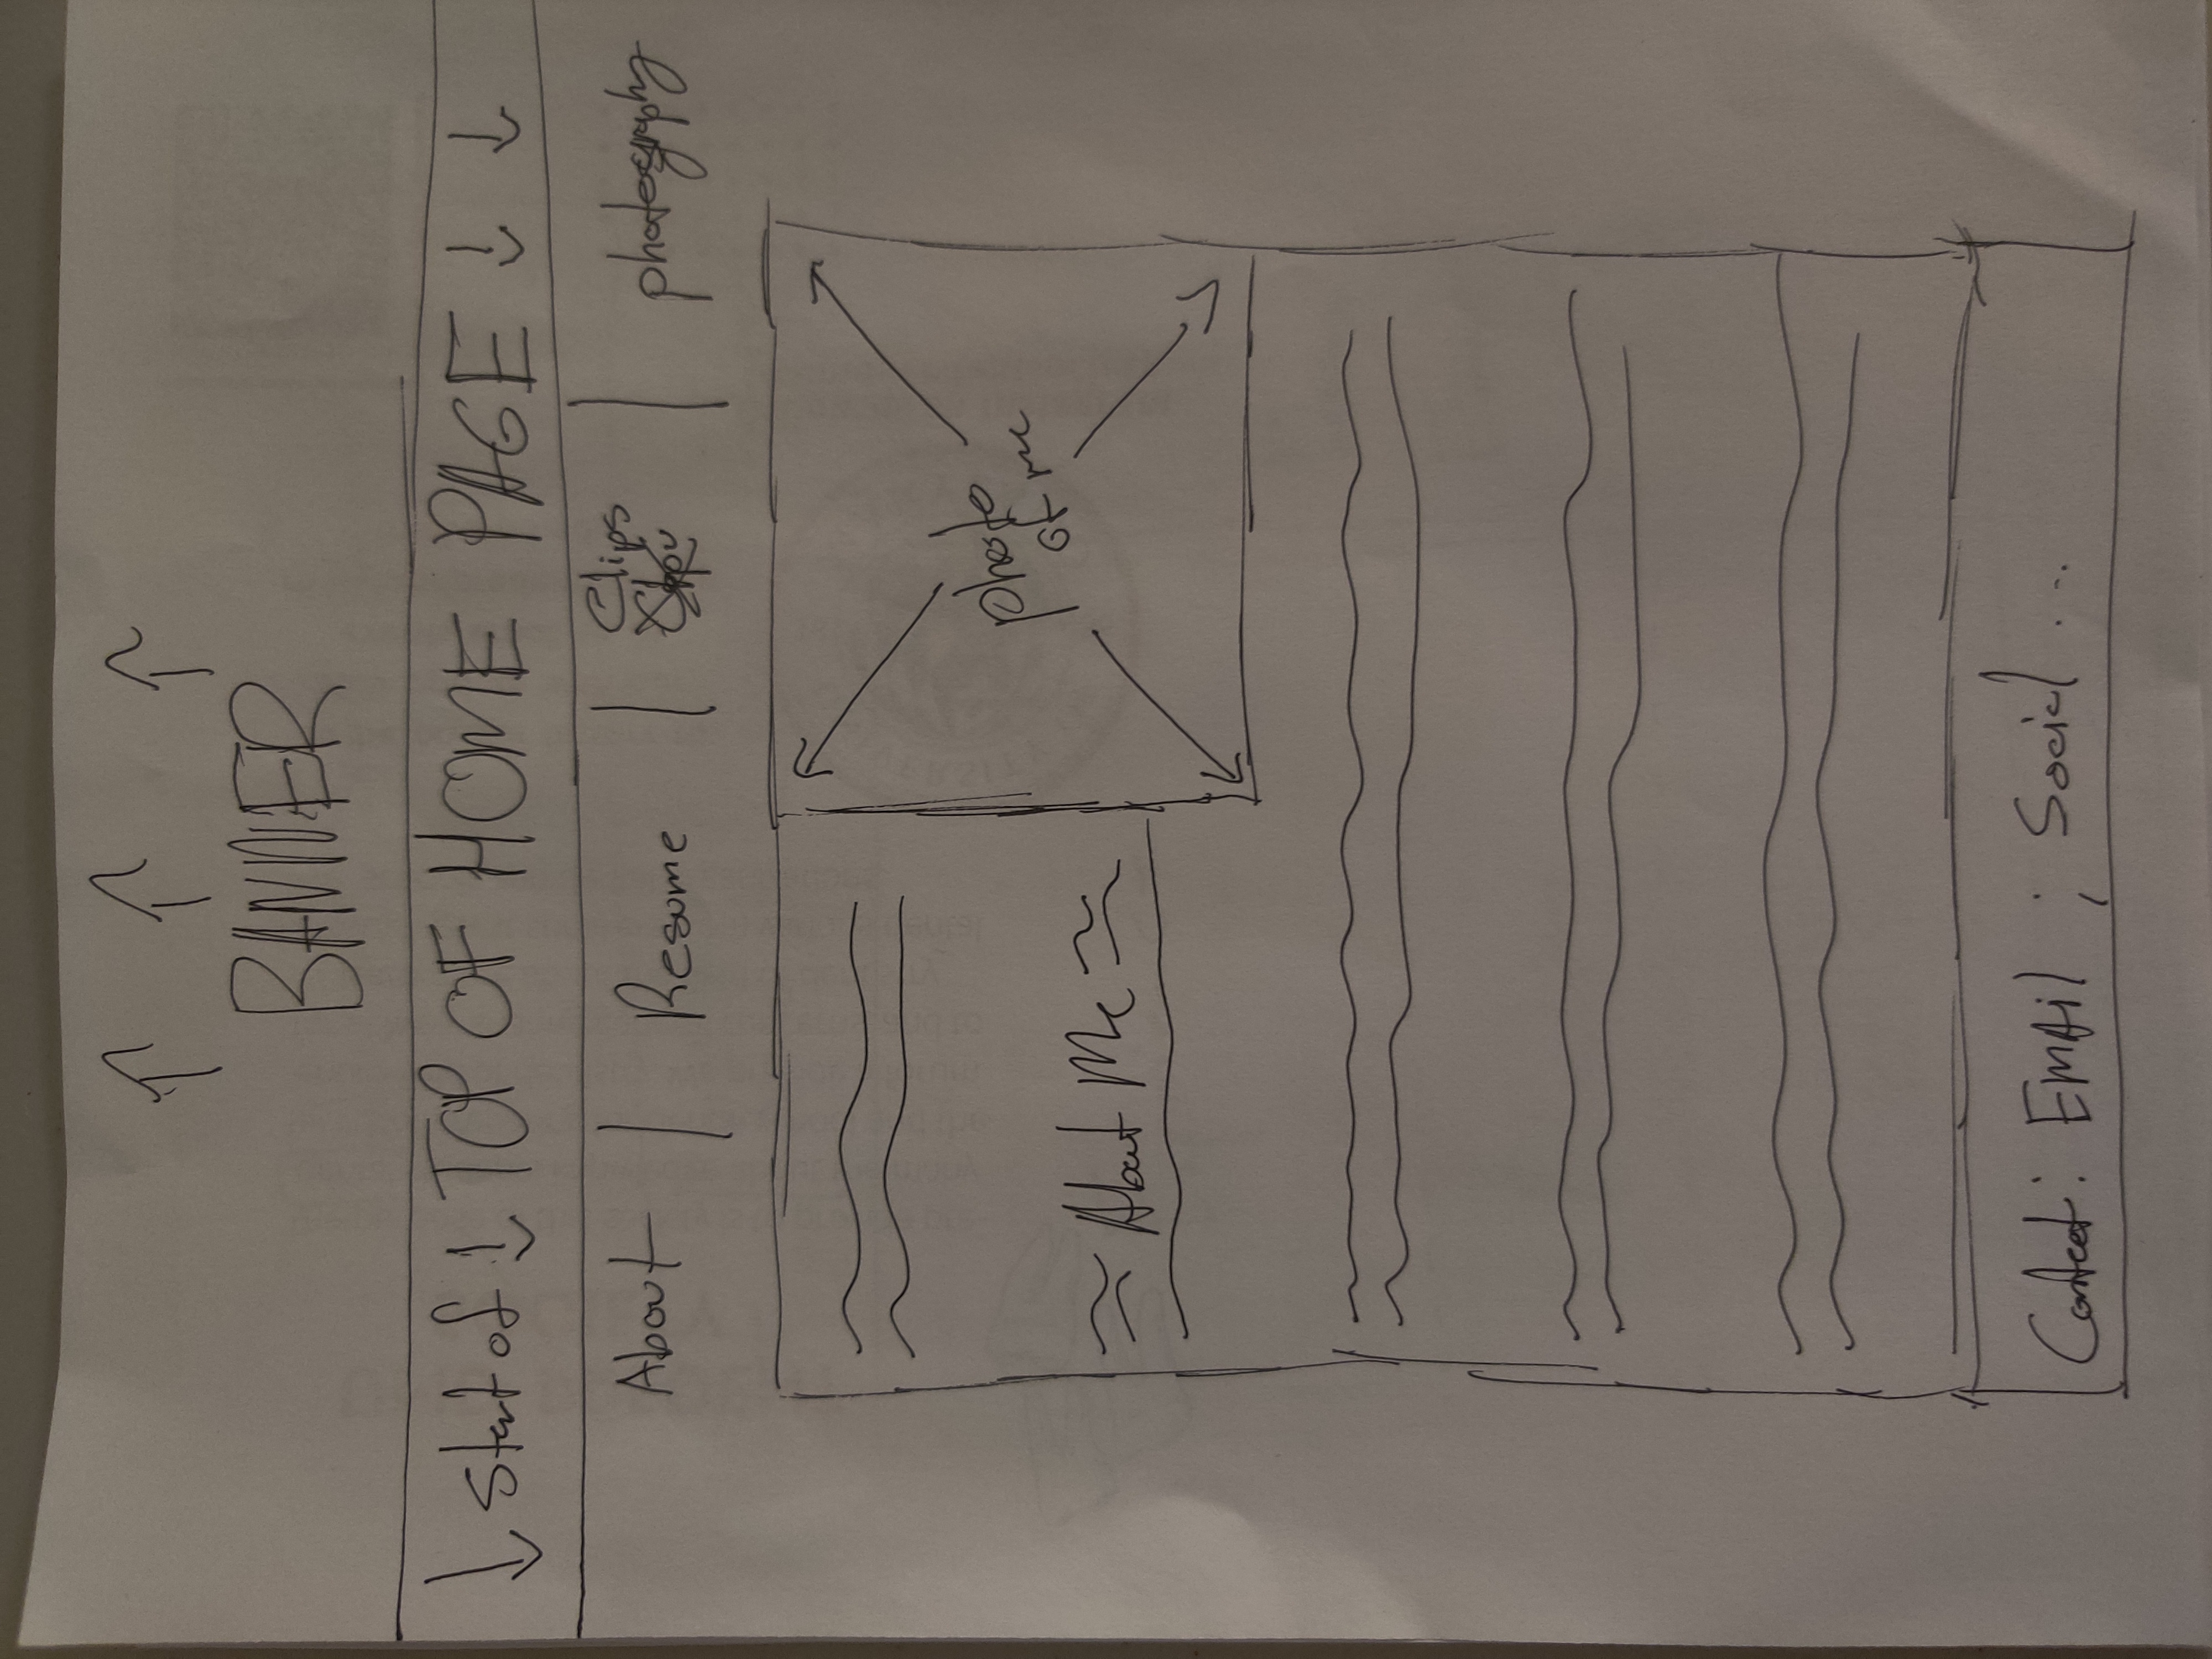 BANNER
Start of TOP OF HOME PAGE
About | Resume | Clips | photography
photo
of me
About Me
Contact: EMAil ; Social ...